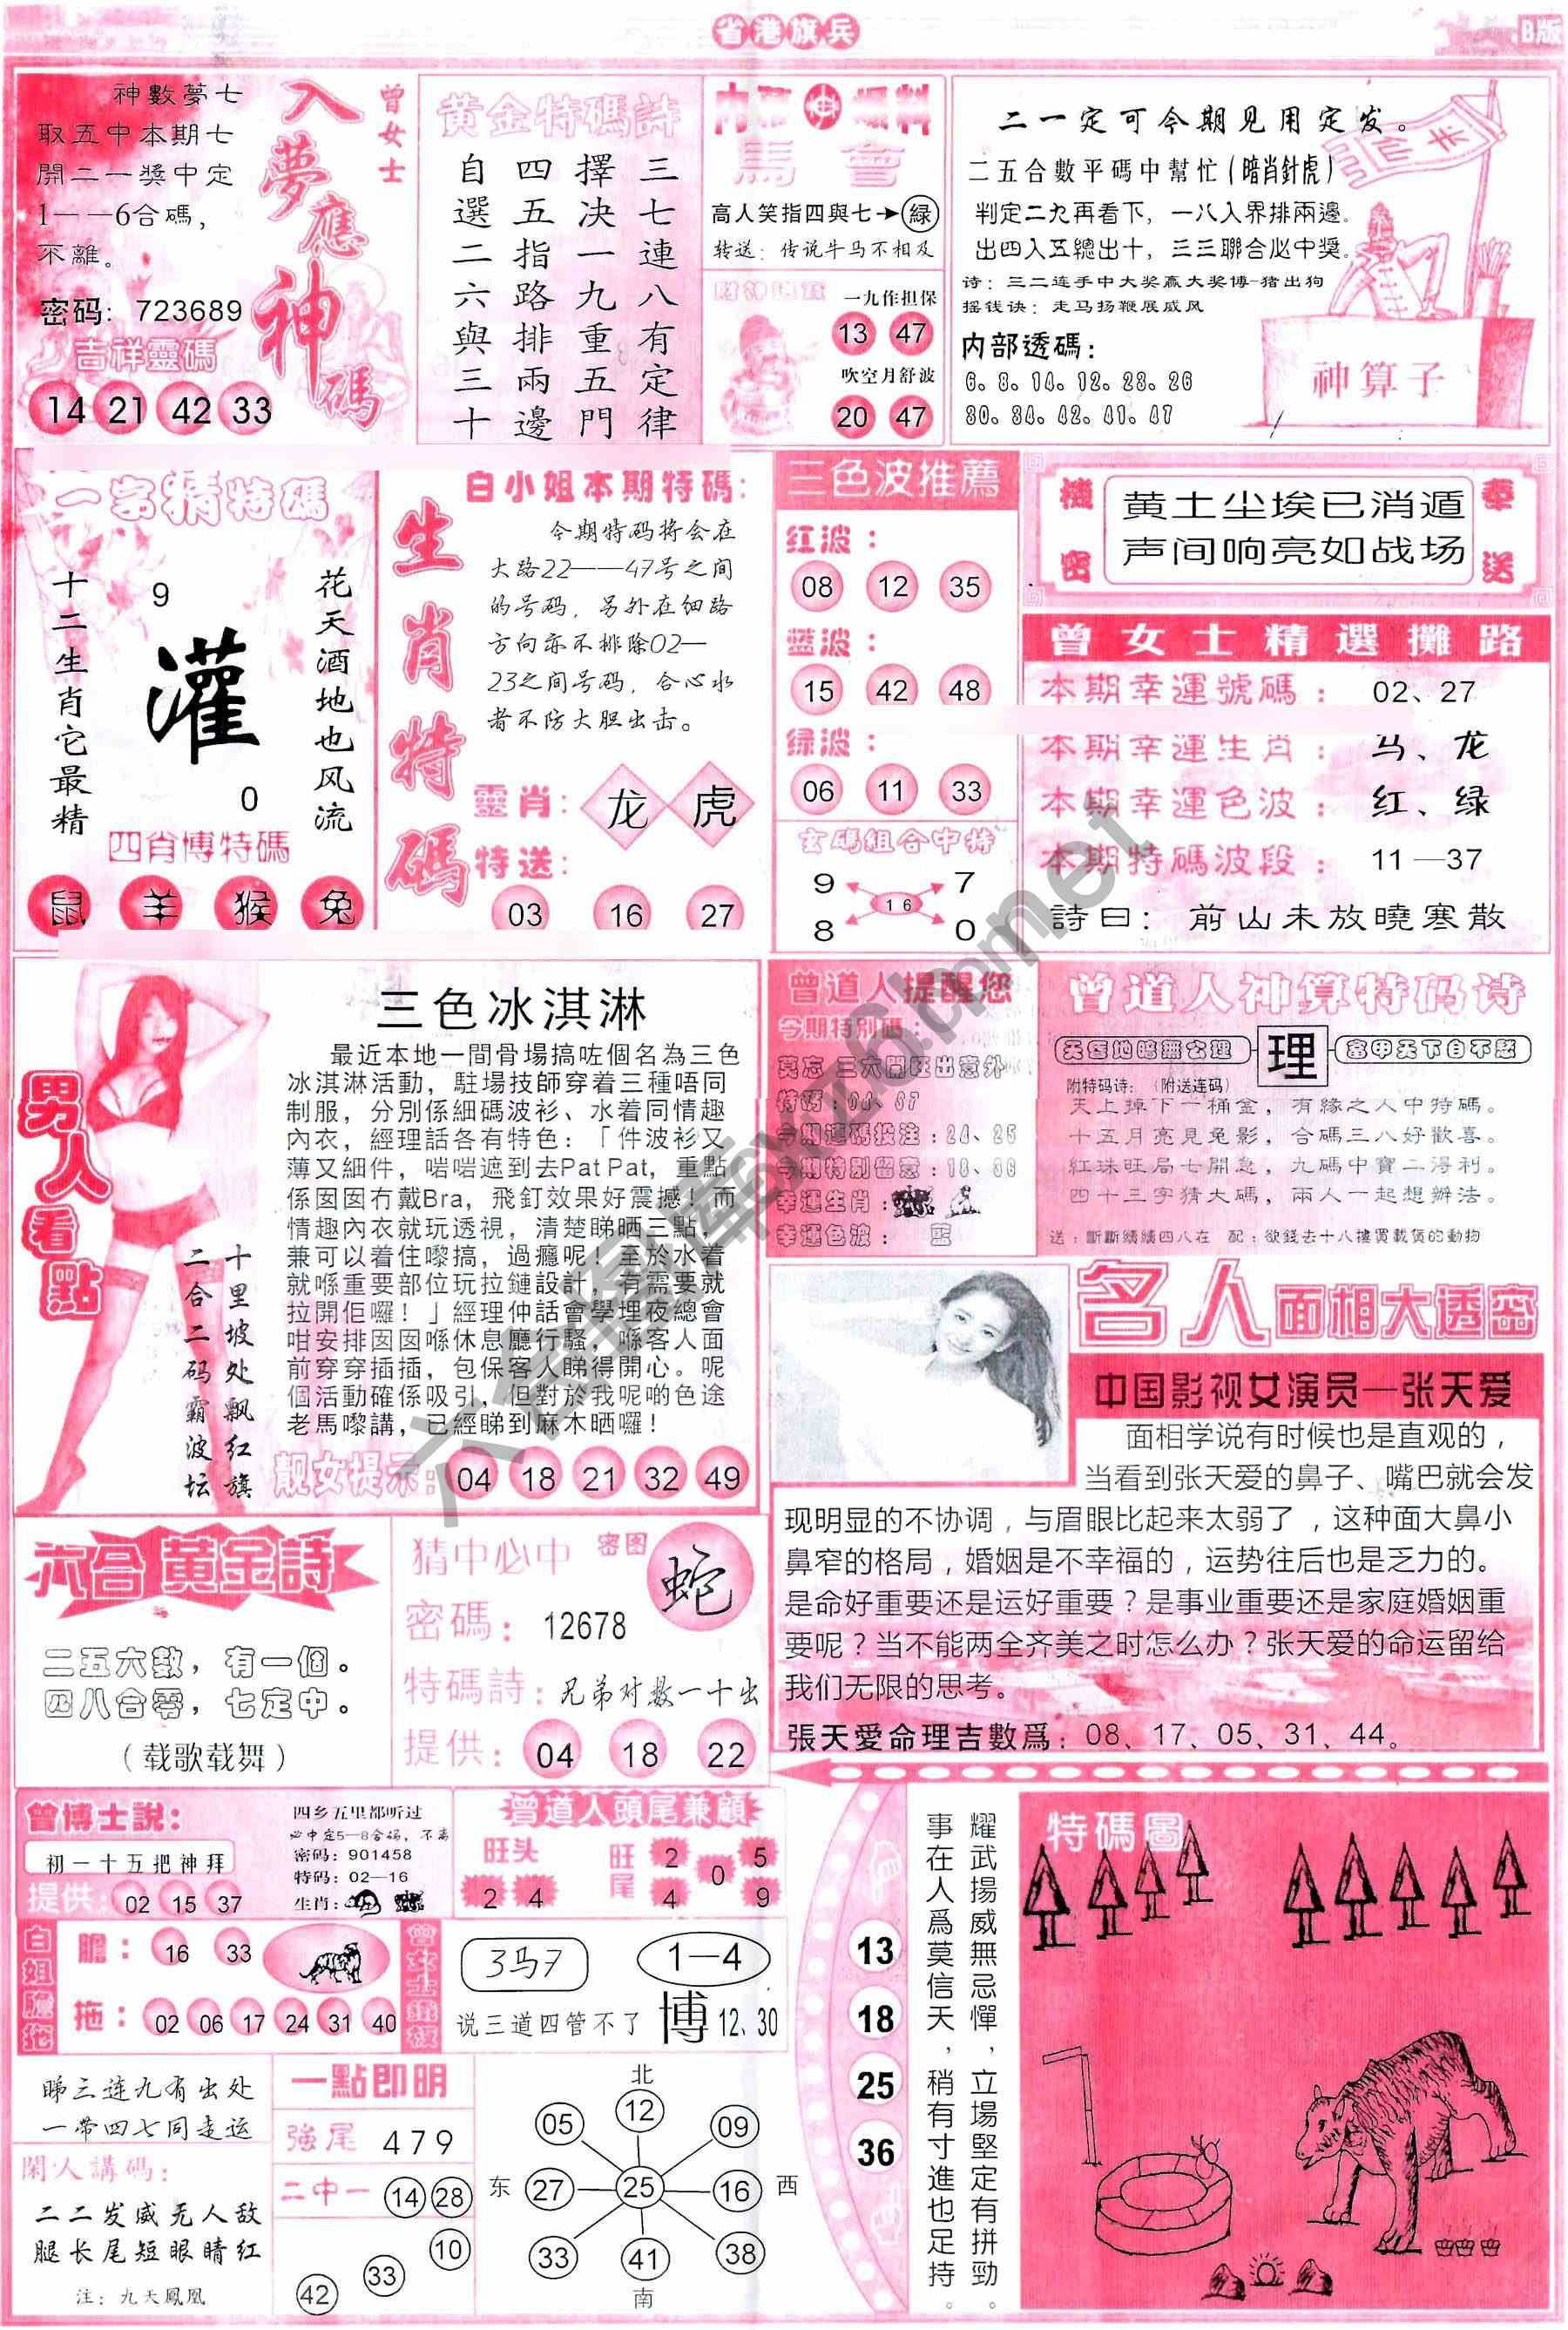 省港旗兵
B版
神數夢七
取五中本期七
開二一獎中定
1——6合碼，
不離。
密码：723689
吉祥靈碼
14 21 42 33
曾女士
入夢應神碼
黄金特碼詩
自選二六與三十
四五指路排兩邊
擇決一九重五門
三七連八有定律
馬會
高人笑指四與七→綠
转送：传说牛马不相及
一九作担保
13 47
吹空月舒波
20 47
二一定可今期见用定发。
二五合數平碼中幫忙(暗肖針虎)
判定二九再看下，一八入界排兩邊。
出四入五總出十，三三聯合必中獎。
诗：三二连手中大奖赢大奖博-猪出狗
摇钱诀：走马扬鞭展威风
内部透碼：
6。8。14。12。28。26
30。34。42。41。47
神算子
一字猜特碼
十二生肖它最精
9
灌
0
花天酒地也风流
四肖博特碼
鼠 羊 猴 兔
生肖特碼
白小姐本期特碼：
今期特码将会在
大路22——47号之间
的号码，另外在细路
方向亦不排除02—
23之间号码，合心水
者不防大胆出击。
靈肖：龙 虎
特送：
03 16 27
三色波推薦
红波：
08 12 35
蓝波：
15 42 48
绿波：
06 11 33
玄碼組合中特
9 7
16
8 0
機密
黄土尘埃已消遁
声间响亮如战场
奉送
曾女士精選攤路
本期幸運號碼：02、27
本期幸運生肖：马、龙
本期幸運色波：红、绿
本期特碼波段：11—37
詩曰：前山未放曉寒散
男人看點
十里坡处飘红旗
二合二码霸波坛
三色冰淇淋
最近本地一間骨場搞咗個名為三色
冰淇淋活動，駐場技師穿着三種唔同
制服，分別係細碼波衫、水着同情趣
內衣，經理話各有特色：「件波衫又
薄又細件，啱啱遮到去Pat Pat，重點
係囡囡冇戴Bra，飛釘效果好震撼！而
情趣內衣就玩透視，清楚睇晒三點，
兼可以着住嚟搞，過癮呢！至於水着
就喺重要部位玩拉鏈設計，有需要就
拉開佢囉！」經理仲話會學埋夜總會
咁安排囡囡喺休息廳行騷，喺客人面
前穿穿插插，包保客人睇得開心。呢
個活動確係吸引，但對於我呢啲色途
老馬嚟講，已經睇到麻木晒囉！
靚女提示：04 18 21 32 49
曾道人提醒您
今期特別碼：
莫忘 三六開旺出意外
今期連碼投注：24、25
今期特别留意：18、36
幸運生肖：
幸運色波： 蓝
曾道人神算特码诗
天昏地暗無公理 理 富甲天下自不愁
附特码诗：（附送连码）
天上掉下一桶金，有緣之人中特碼。
十五月亮見兔影，合碼三八好歡喜。
紅珠旺局七開急，九碼中寶二得利。
四十三字猜大碼，兩人一起想辦法。
送：斷斷續續四八在 配：欲錢去十八樓買載貨的動物
名人面相大透密
中国影视女演员—张天爱
面相学说有时候也是直观的，
当看到张天爱的鼻子、嘴巴就会发
现明显的不协调，与眉眼比起来太弱了，这种面大鼻小
鼻窄的格局，婚姻是不幸福的，运势往后也是乏力的。
是命好重要还是运好重要？是事业重要还是家庭婚姻重
要呢？当不能两全齐美之时怎么办？张天爱的命运留给
我们无限的思考。
張天愛命理吉數爲：08、17、05、31、44。
六合黄金詩
二五六數，有一個。
四八合零，七定中。
（载歌载舞）
猜中必中 密图 蛇
密碼：12678
特碼詩：兄弟对数一十出
提供：04 18 22
曾博士説：
初一十五把神拜
提供：02 15 37
四乡五里都听过
必中定5—8合码，不离
密码：901458
特码：02—16
生肖：
曾道人頭尾兼顧
旺头
2 4
旺尾
2 5
0
4 9
白姐膽拖
膽：16 33
拖：02 06 17 24 31 40
3马7
1—4
说三道四管不了 博 12、30
睇三连九有出处
一带四七同走运
閑人講碼：
二二发威无人敌
腿长尾短眼睛红
注：九天鳳凰
一點即明
強尾 479
二中一 14 28
10
33
42
北
05 12 09
东 27 25 16 西
33 41 38
南
13
18
25
36
耀武揚威無忌憚，立場堅定有拼勁。
事在人爲莫信天，稍有寸進也足持。
特碼圖